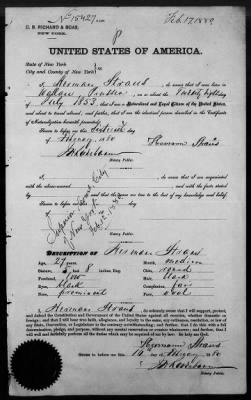 No 15427
Feb. 17. 1880
C. B. RICHARD & BOAS,
NEW YORK.
UNITED STATES OF AMERICA.
State of New York
City and County of New York
I, Herman Straus, do swear that I was born in
Prussia, on or about the
day
of July 1853; that I am a Naturalized and Loyal Citizen of the United States,
and about to travel abroad; and further, that I am the identical person described in the Certificate
of Naturalization herewith presented.
Sworn to before me this Sixteenth day
of February 1880
Hermann Straus
Notary Public.
I, do swear that I am acquainted
with the above-named and with the facts stated
by are true to the best of my knowledge and belief
Sworn to before me this
day of
Superior Court City
of New York
Notary Public.
DESCRIPTION OF Herman Straus
Age, 27 years
Mouth, medium
Stature, 5 8 inches, Eng.
Chin, round
Forehead, low
Hair, black
Eyes, black
Complexion, fair
Nose, prominent
Face, oval
I, Herman Straus, do solemnly swear that I will support, protect and defend
the Constitution and Government of the United States against all enemies, whether domestic or
foreign; and that I will bear true faith, allegiance, and loyalty to the same, any ordinance, resolution or law
of any State, Convention, or Legislature to the contrary notwithstanding; and further, that I do this with a full
determination, pledge and purpose, without any mental reservation or evasion whatsoever; and further, that I
will well and faithfully perform all the duties which may be required of me by law. So help me God.
Hermann Straus
Sworn to before me, this
16 February 1880
Notary Public.